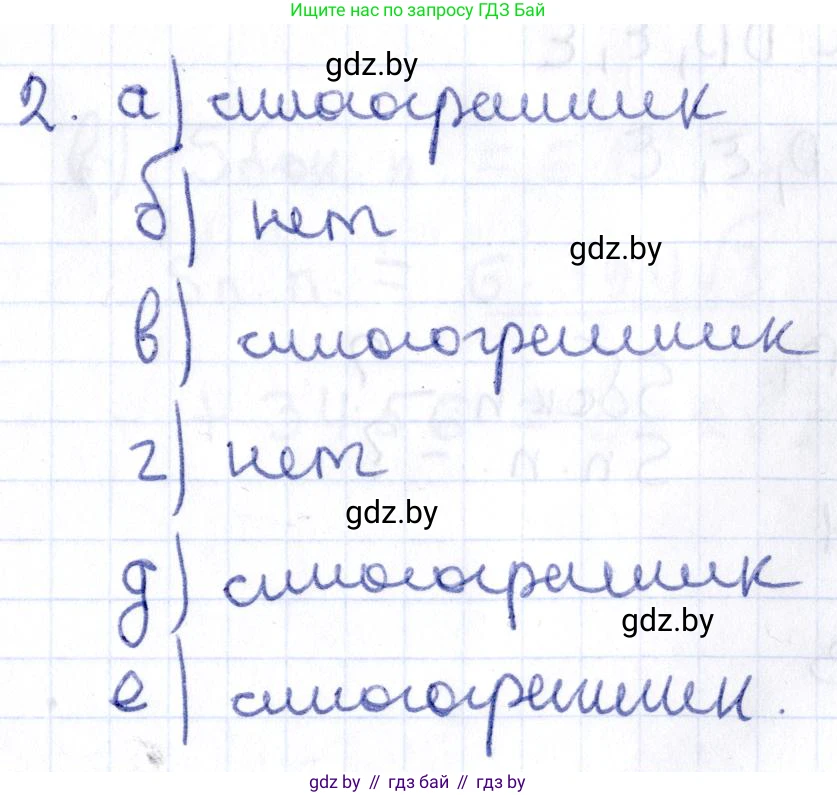 Ищите нас по запросу ГДЗ Бай
gdz.by
2. а) многогранник
б) нет
gdz.by
в) многогранник
г) нет
gdz.by
д) многогранник
gdz.by
е) многогранник.
gdz by // гдз бай // гдз by